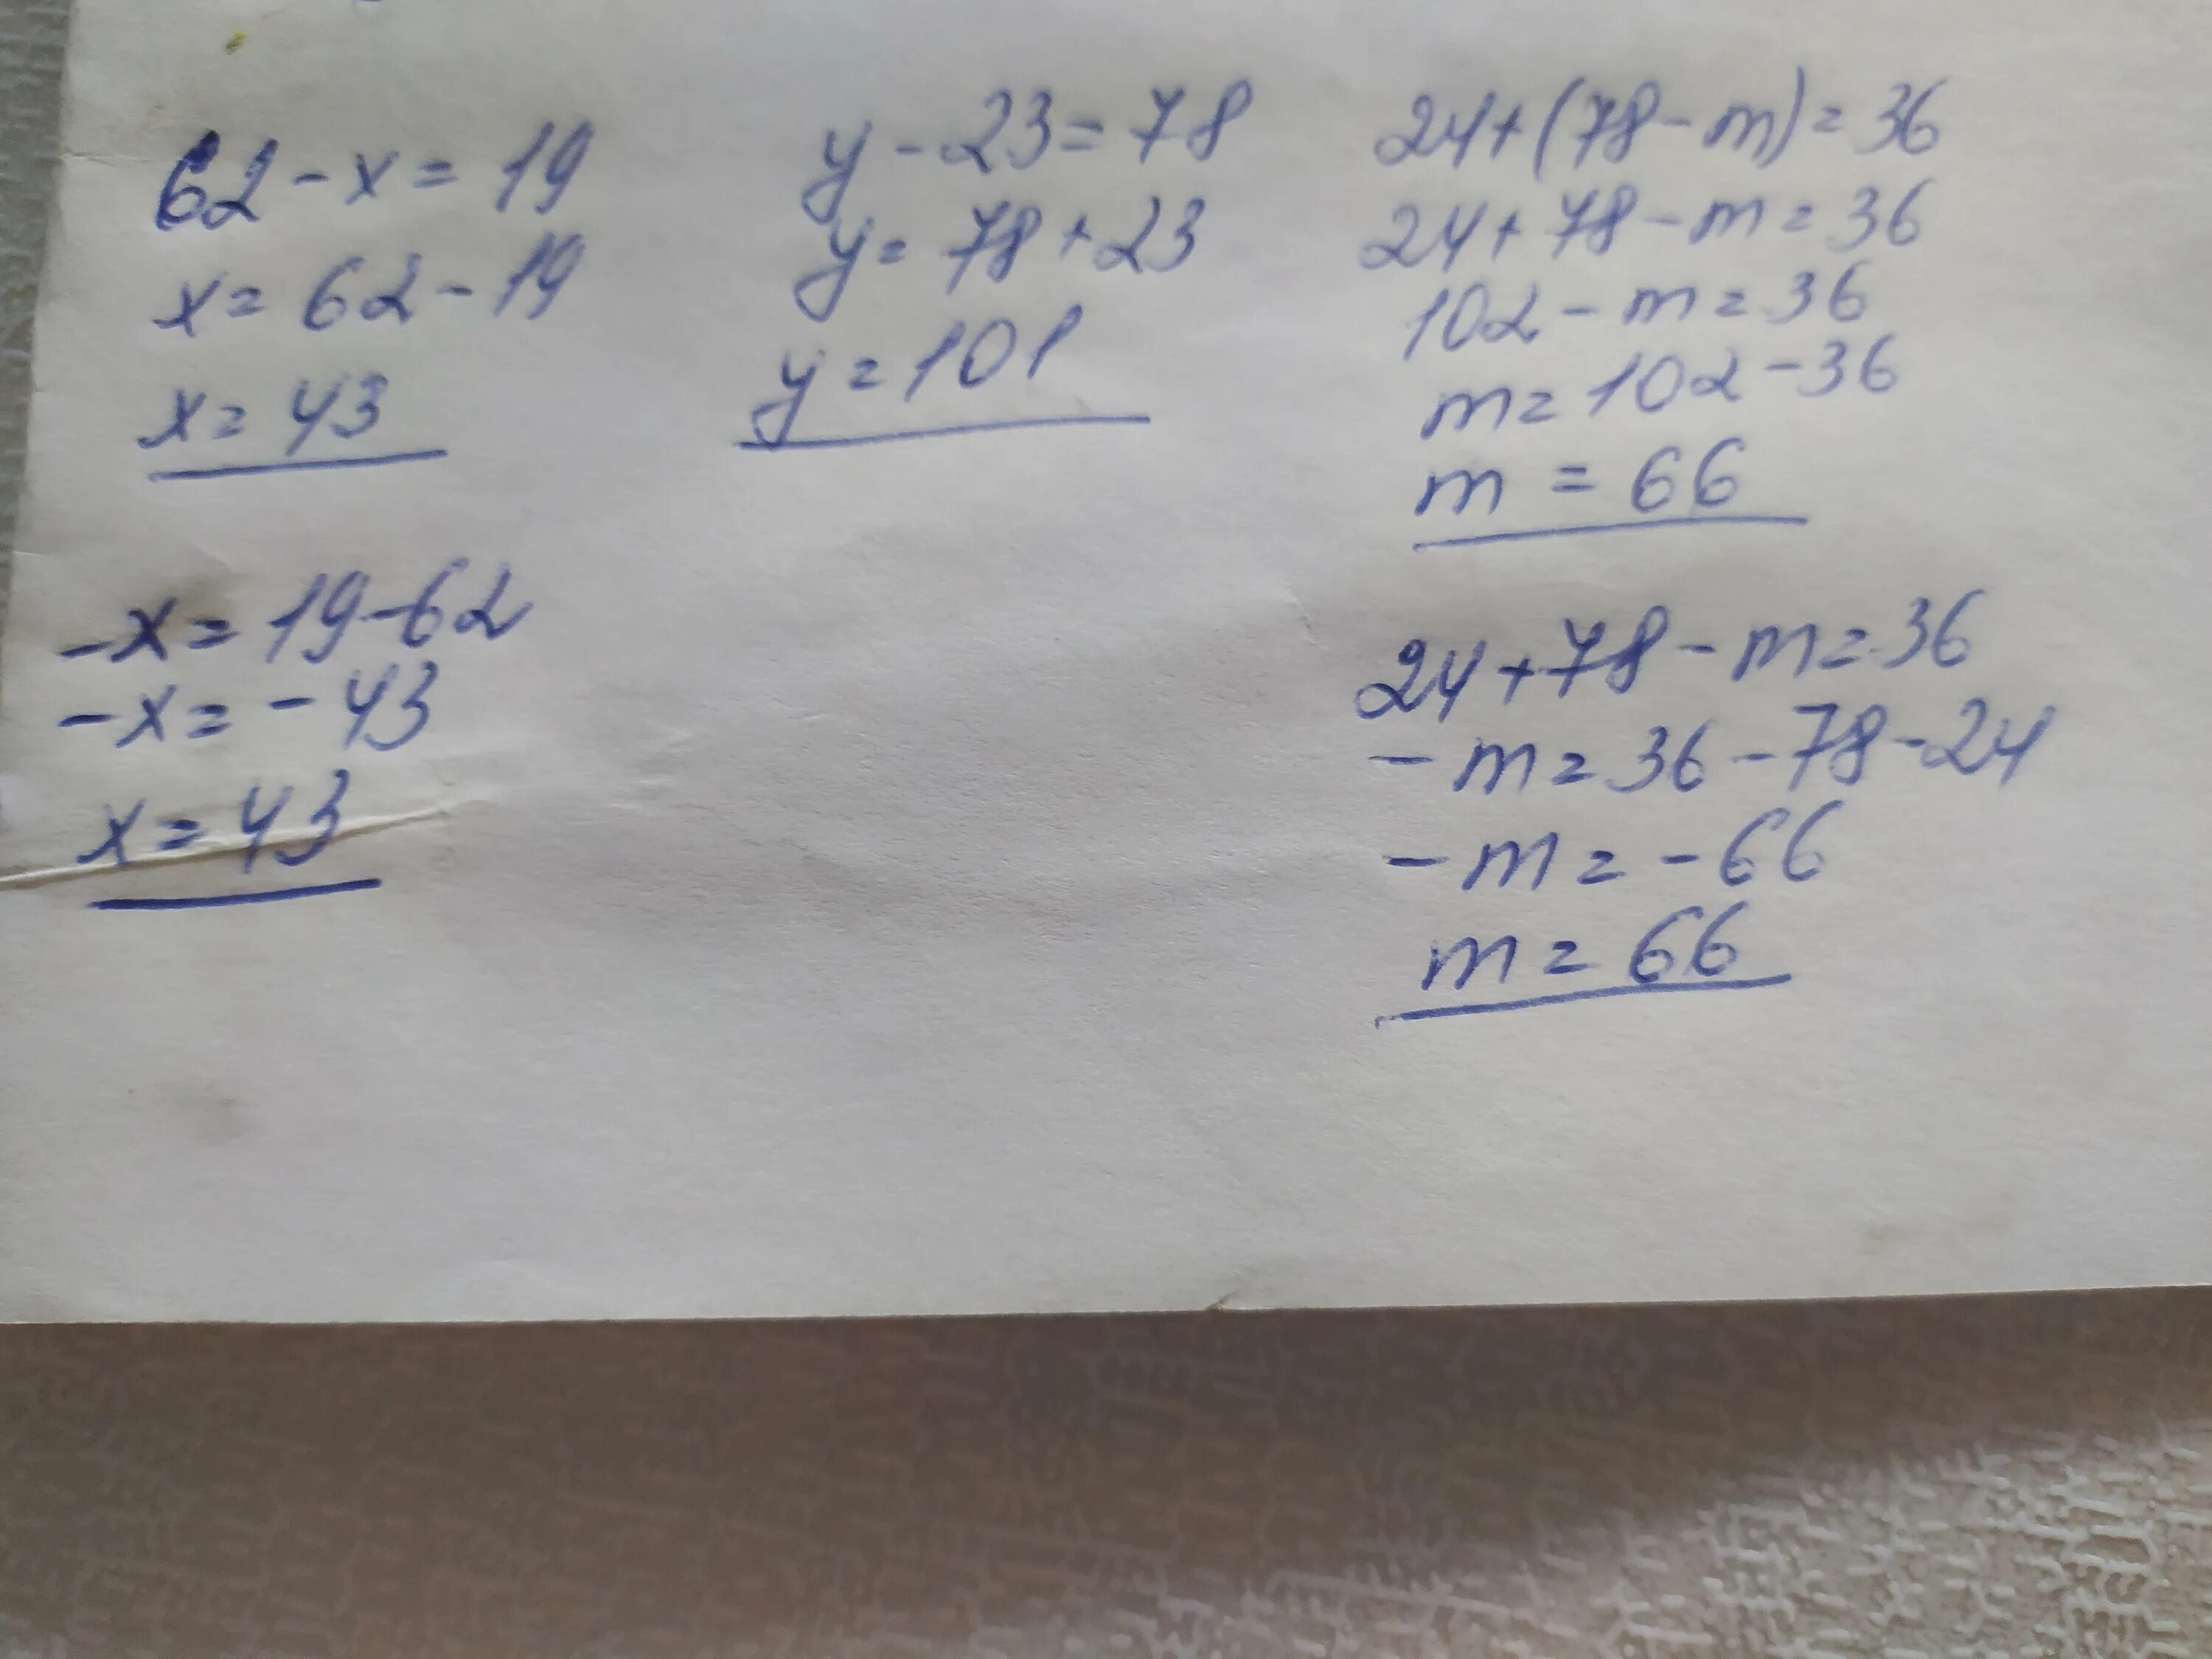 62 - x = 19
x = 62 - 19
x = 43
-x = 19 - 62
-x = - 43
x = 43
y - 23 = 78
y = 78 + 23
y = 101
24 + (78 - m) = 36
24 + 78 - m = 36
102 - m = 36
m = 102 - 36
m = 66
24 + 78 - m = 36
- m = 36 - 78 - 24
- m = - 66
m = 66